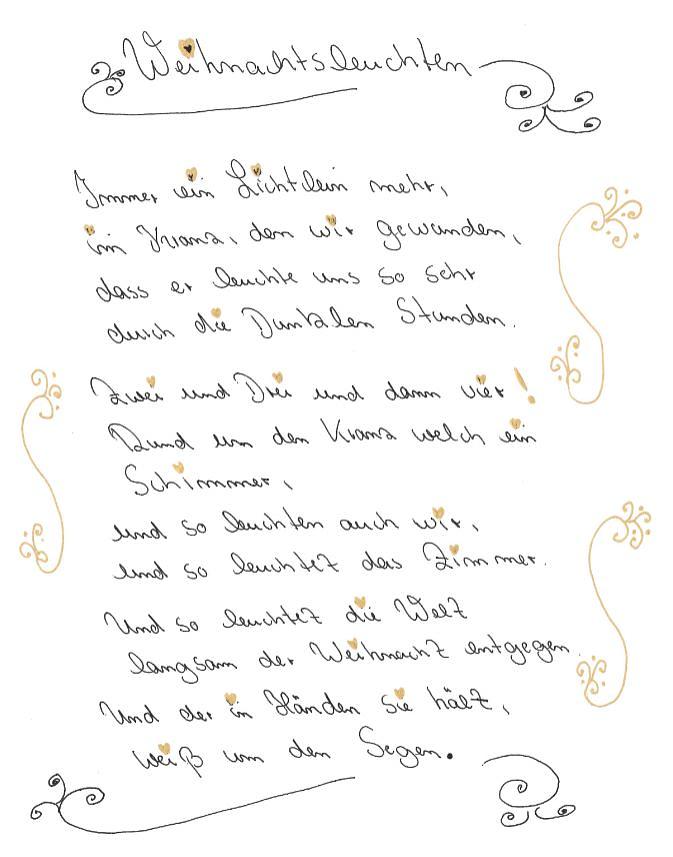 Weihnachtsleuchten
Immer ein Lichtlein mehr,
im Kranz, den wir gewunden,
dass er leuchte uns so sehr
durch die Dunklen Stunden.
Zwei und Drei und dann vier!
Rund um den Kranz welch ein
Schimmer,
und so leuchten auch wir,
und so leuchtet das Zimmer.
Und so leuchtet die Welt
langsam der Weihnacht entgegen.
Und der in Händen sie hält,
weiß um den Segen.